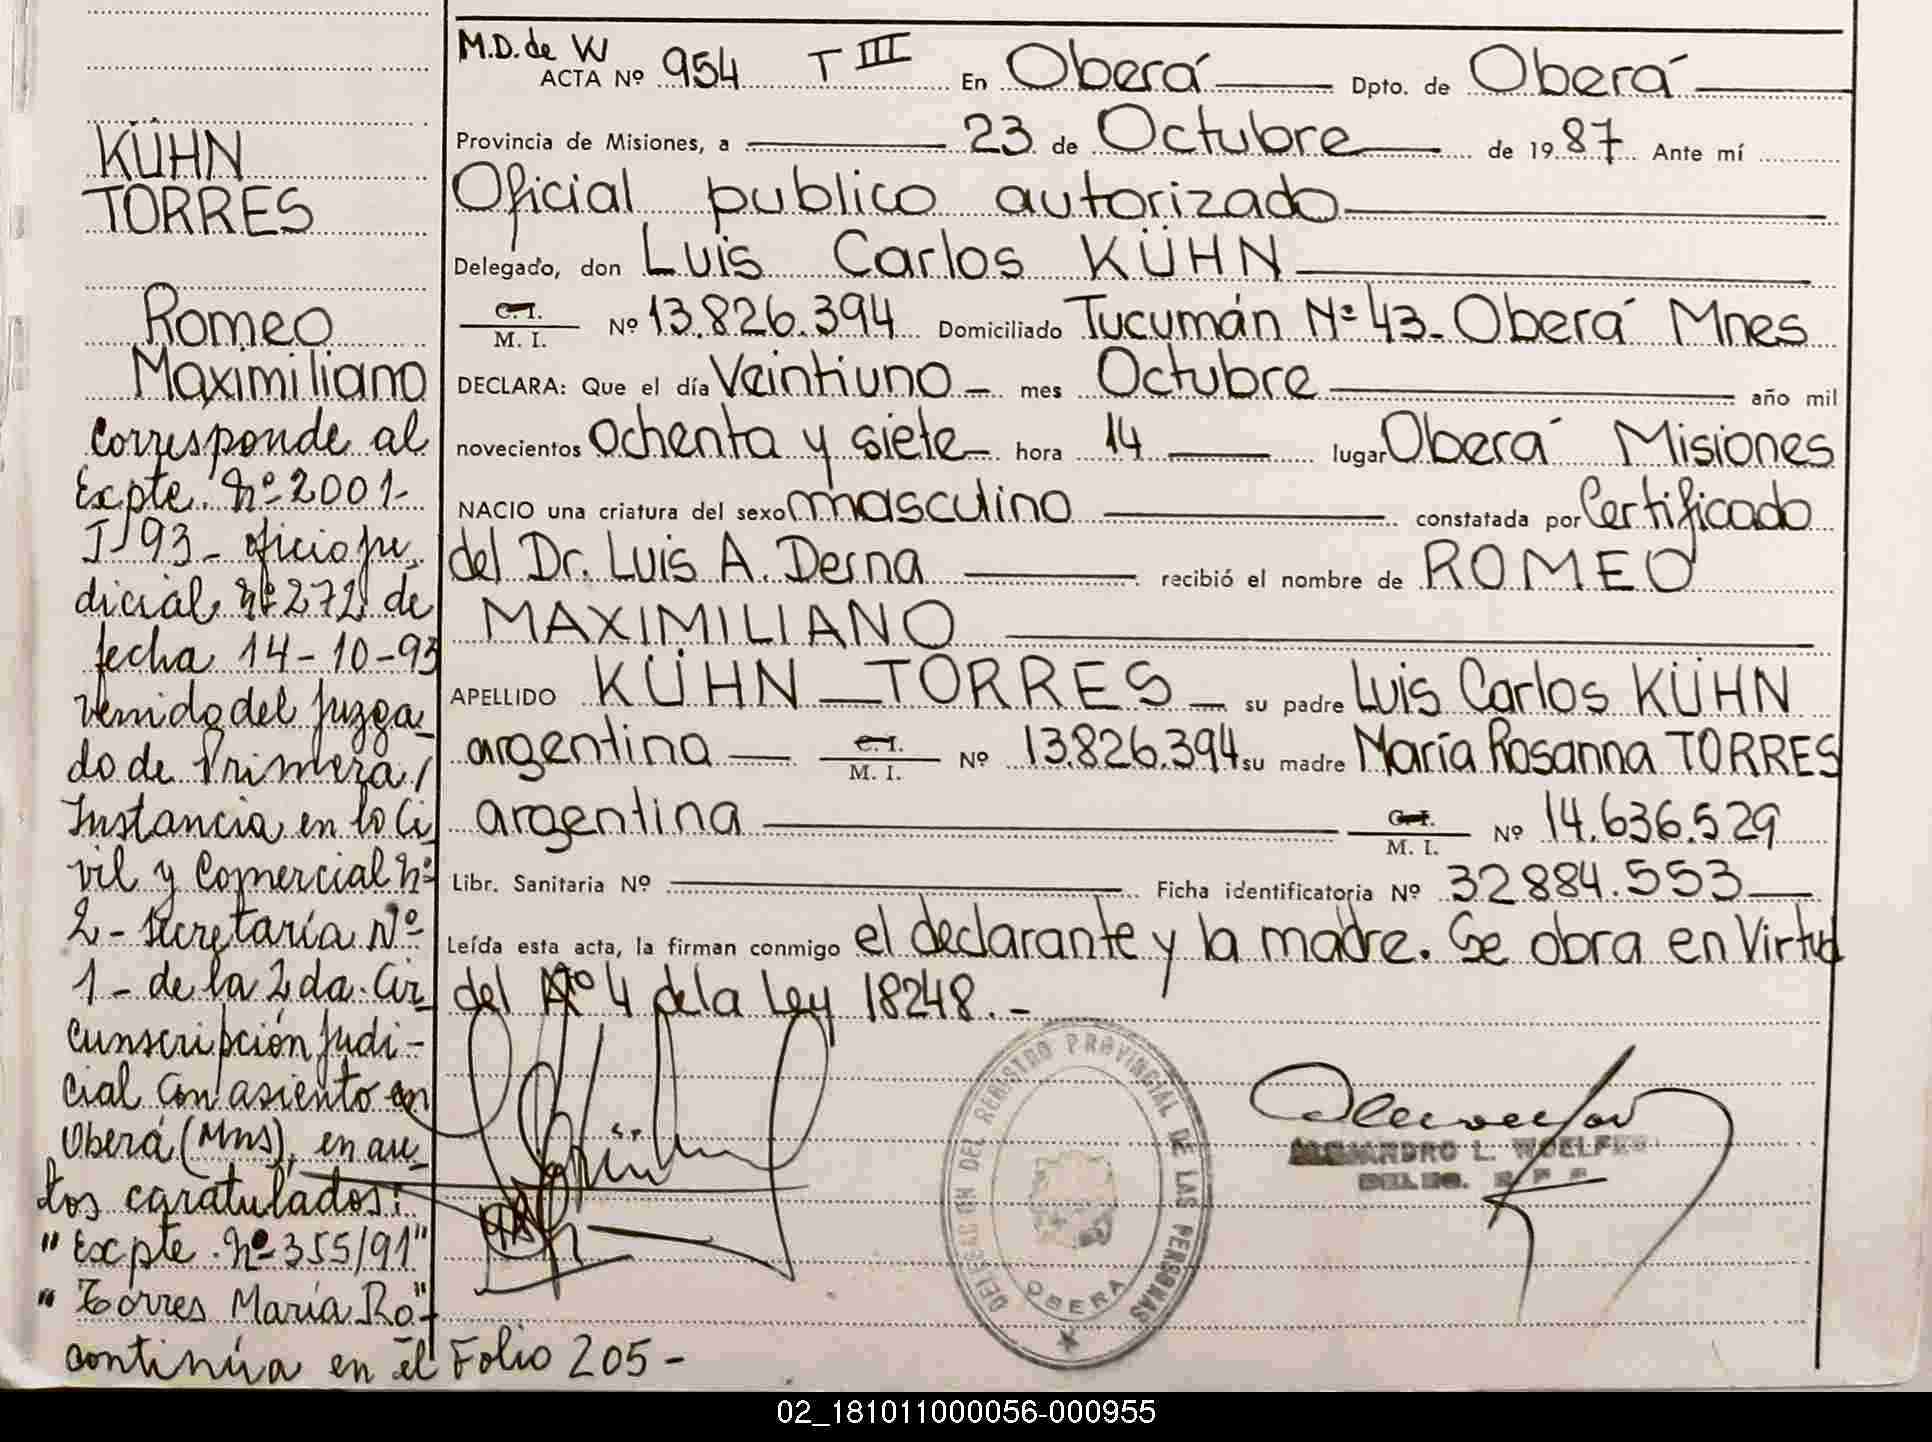 KÜHN
TORRES
Romeo
Maximiliano
Corresponde al
Expte. Nº 2001-
J-93- oficio ju-
dicial Nº 272 de
fecha 14-10-93
venido del Juzga-
do de Primera /
Instancia en lo Ci-
vil y Comercial Nº
2 - Secretaría Nº
1 - de la 2da. Cir-
cunscripción Judi-
cial con asiento en
Oberá (Mns), en au-
tos caratulados:
"Expte. Nº 355/91"
"Torres María Ro"-
continúa en el Folio 205 -
M.D. de W
ACTA Nº 954 T III En Oberá Dpto. de Oberá
Provincia de Misiones, a 23 de Octubre de 1987 Ante mí
Oficial publico autorizado
Delegado, don Luis Carlos KÜHN
C. I.
M. I. Nº 13.826.394 Domiciliado Tucumán Nº 43- Oberá Mnes
DECLARA: Que el día Veintiuno mes Octubre año mil
novecientos ochenta y siete hora 14 lugar Oberá Misiones
NACIO una criatura del sexo masculino constatada por Certificado
del Dr. Luis A. Derna recibió el nombre de ROMEO
MAXIMILIANO
APELLIDO KÜHN TORRES su padre Luis Carlos KÜHN
argentina C. I.
M. I. Nº 13.826.394 su madre María Rosanna TORRES
argentina C. I.
M. I. Nº 14.636.529
Libr. Sanitaria Nº Ficha identificatoria Nº 32884.553
Leída esta acta, la firman conmigo el declarante y la madre. Se obra en Virtud
del Aº 4 de la Ley 18248.-
DELEGACION DEL REGISTRO PROVINCIAL DE LAS PERSONAS
OBERA
ALEJANDRO L. WOELFER
02_181011000056-000955